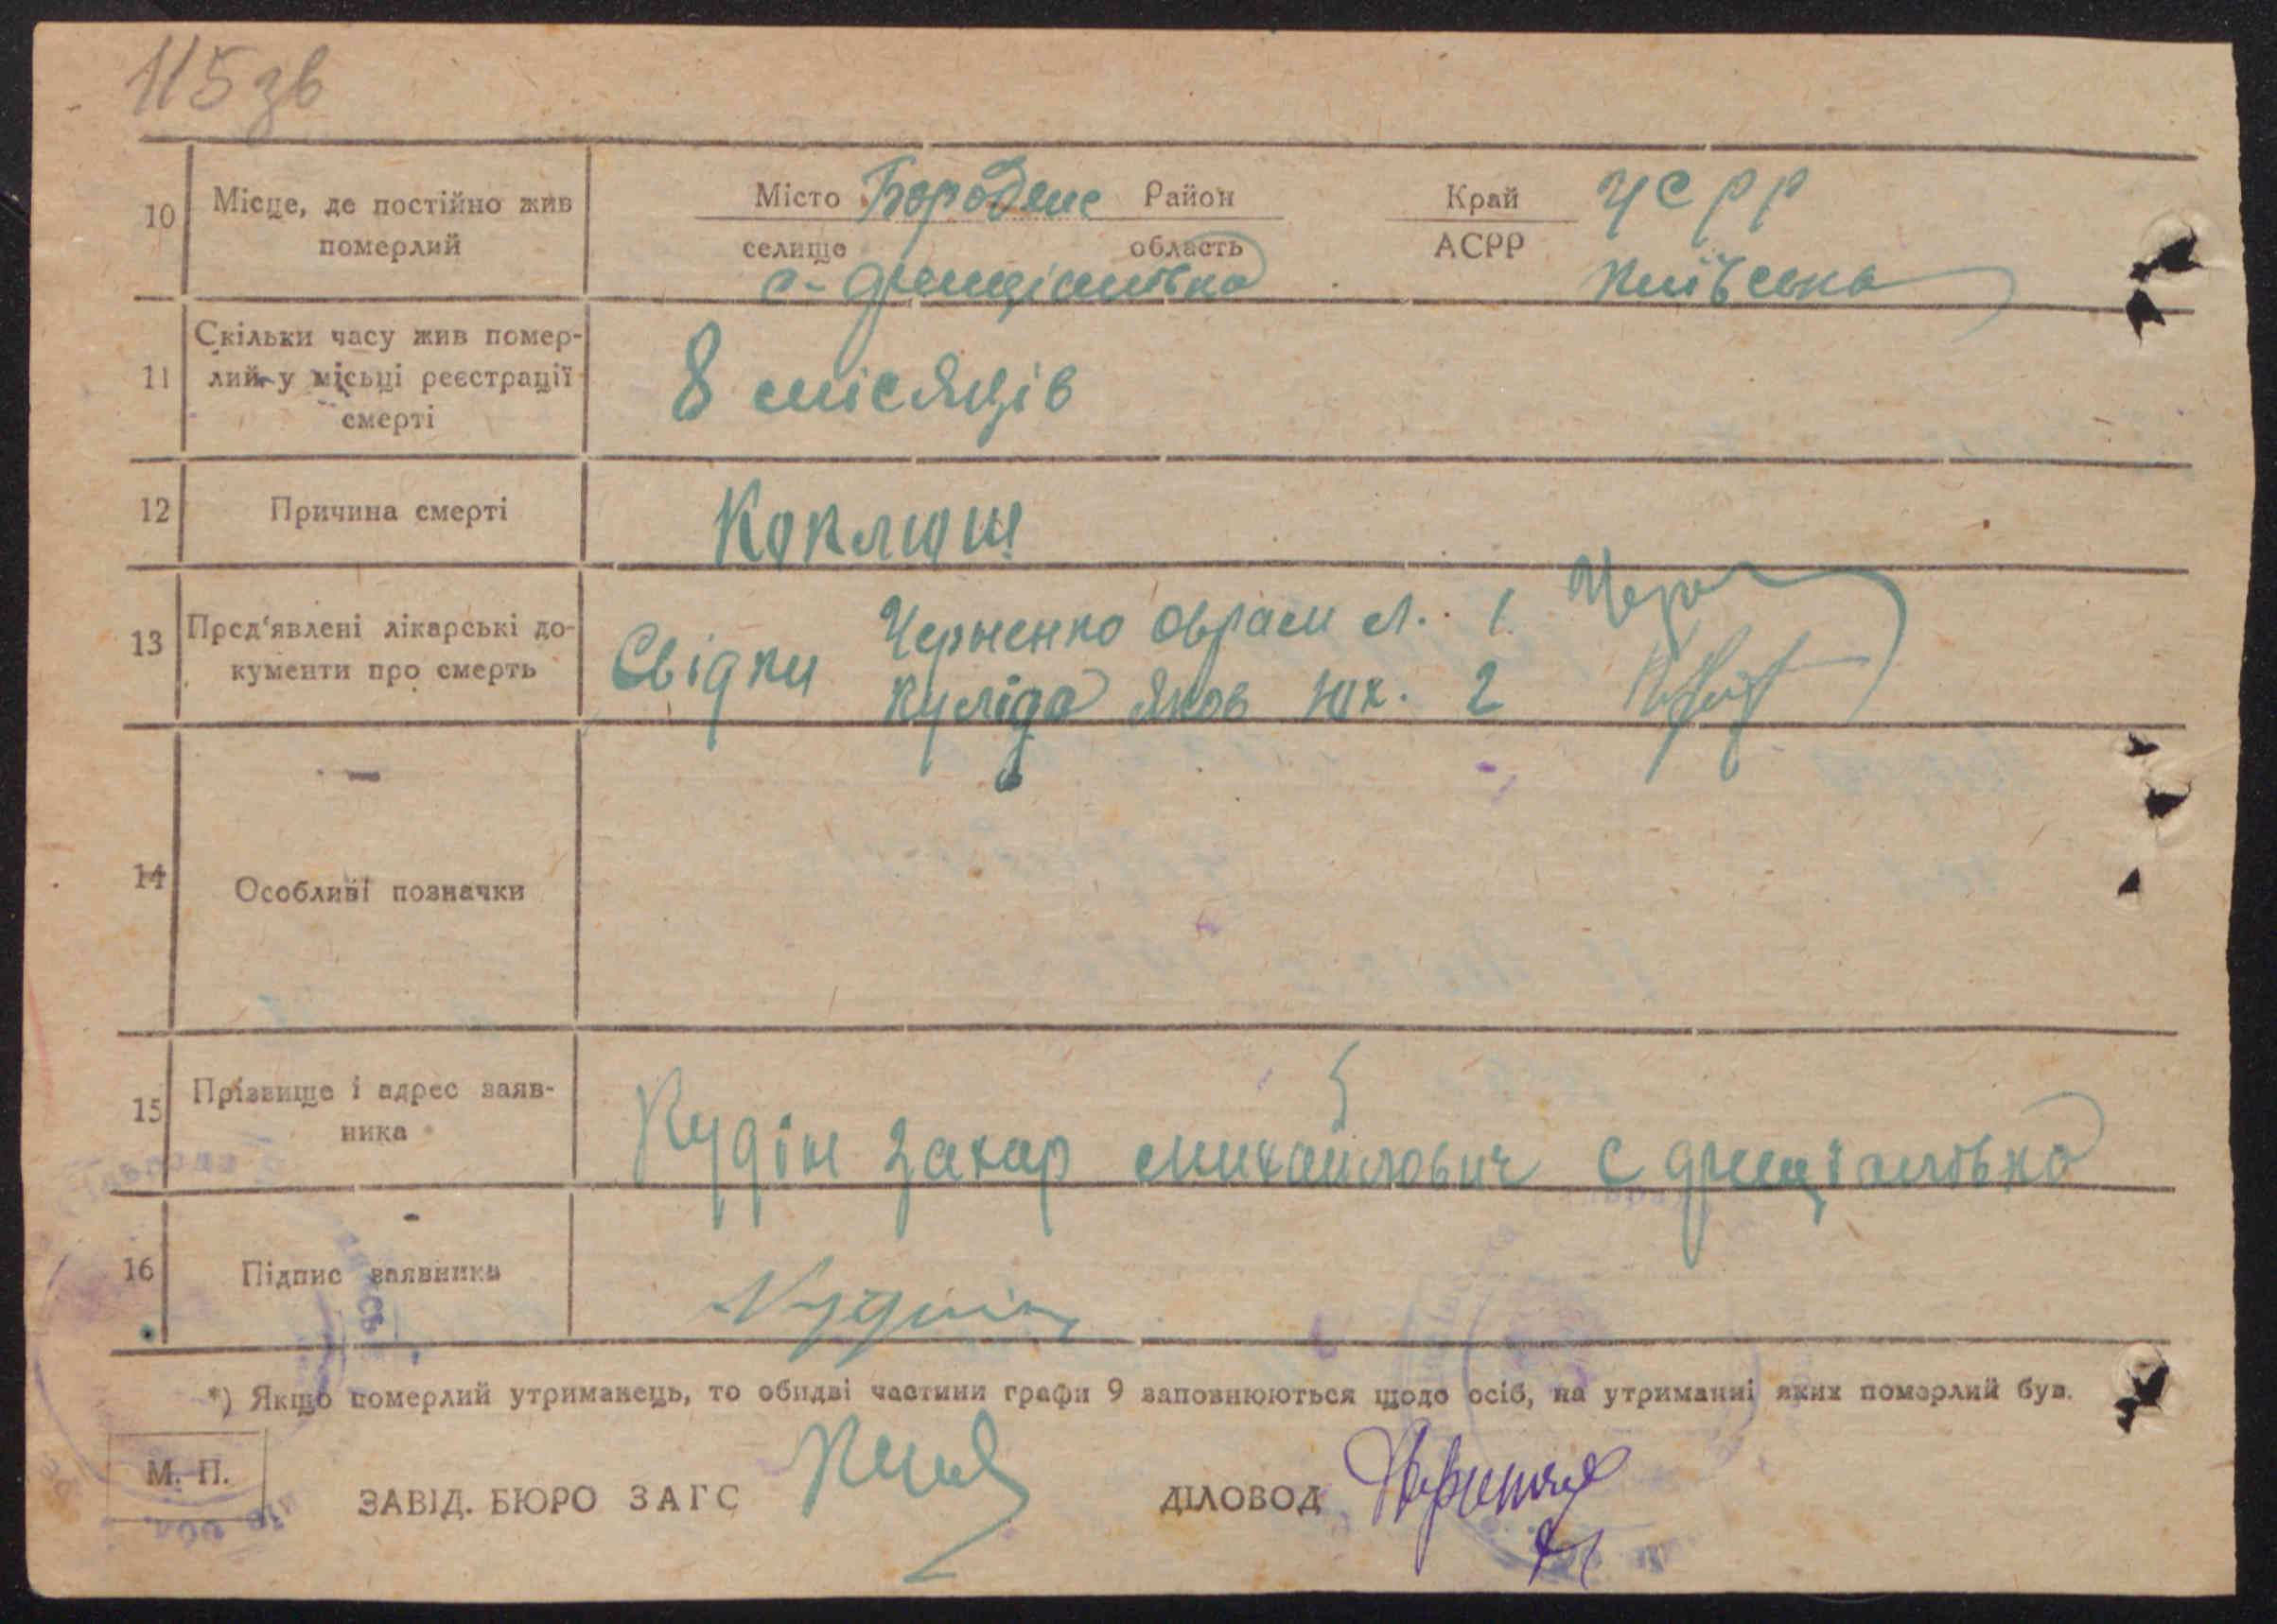 115 зв
10 Місце, де постійно жив Місто Бородянс Район Край УСРР
померлий селище область АСРР
с-Дмитрівка Київська
Скільки часу жив помер-
11 лий у місьці реєстрації 8 місяців
смерті
12 Причина смерті Коклюш
13 Пред'явлені лікарські до- Свідки Черненко Оврам Л. 1.
кументи про смерть Куліда Яков Юх. 2
14 Особливі позначки
15 Прізвище і адрес заяв- Кудін Захар Михайлович с
ника
16 Підпис заявника Кудин
*) Якщо померлий утриманець, то обидві частини графи 9 заповнюються щодо осіб, на утриманні яких померлий був.
М. П.
ЗАВІД. БЮРО ЗАГС ДІЛОВОД